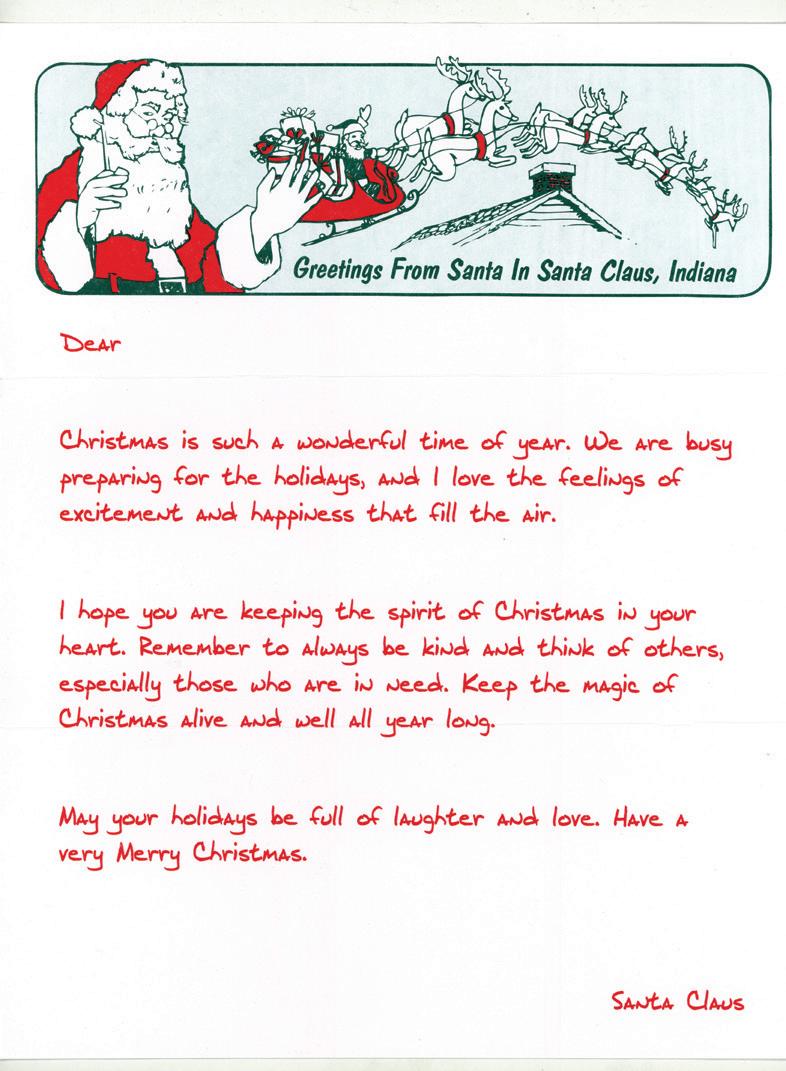 Greetings From Santa In Santa Claus, Indiana
Dear
Christmas is such a wonderful time of year. We are busy
preparing for the holidays, and I love the feelings of
excitement and happiness that fill the air.
I hope you are keeping the spirit of Christmas in your
heart. Remember to always be kind and think of others,
especially those who are in need. Keep the magic of
Christmas alive and well all year long.
May your holidays be full of laughter and love. Have a
very Merry Christmas.
Santa Claus